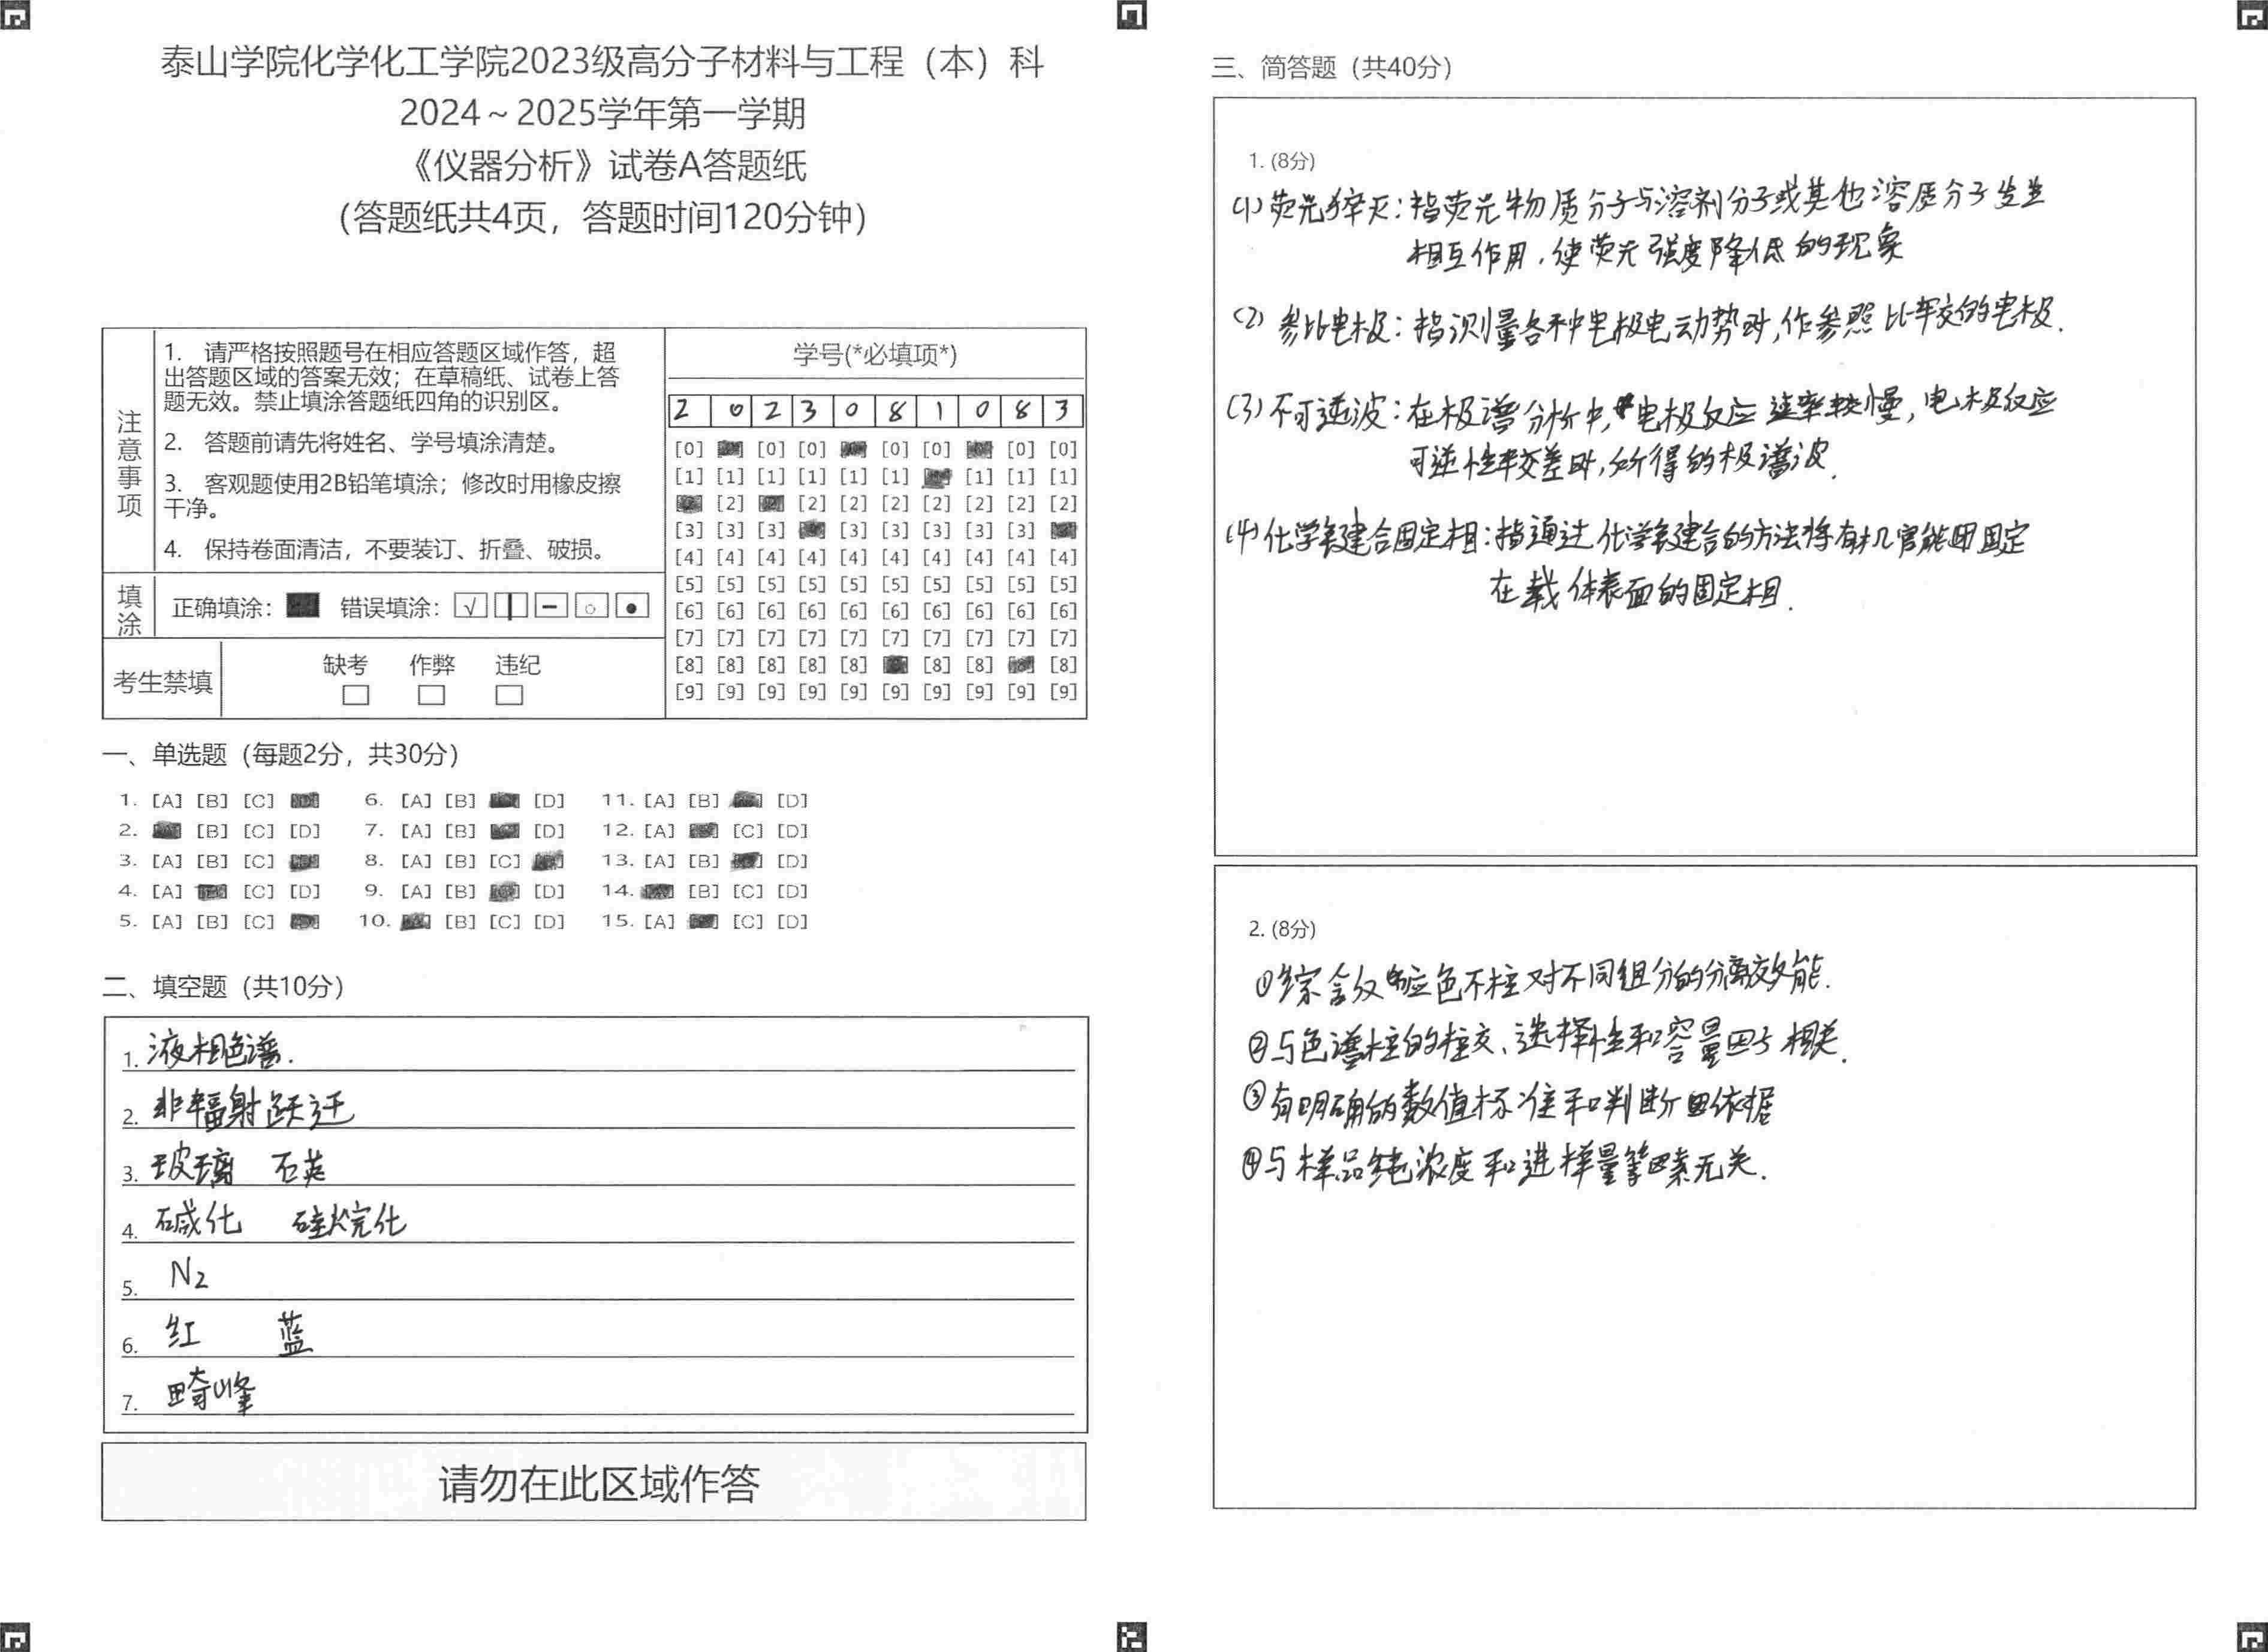 泰山学院化学化工学院2023级高分子材料与工程（本）科
2024～2025学年第一学期
《仪器分析》试卷A答题纸
（答题纸共4页，答题时间120分钟）
注意事项
1. 请严格按照题号在相应答题区域作答，超
出答题区域的答案无效；在草稿纸、试卷上答
题无效。禁止填涂答题纸四角的识别区。
2. 答题前请先将姓名、学号填涂清楚。
3. 客观题使用2B铅笔填涂；修改时用橡皮擦
干净。
4. 保持卷面清洁，不要装订、折叠、破损。
填涂
正确填涂： 错误填涂： √
考生禁填
缺考 作弊 违纪
学号(*必填项*)
2 0 2 3 0 8 1 0 8 3
[0] [0] [0] [0] [0] [0] [0]
[1] [1] [1] [1] [1] [1] [1] [1] [1]
[2] [2] [2] [2] [2] [2] [2] [2]
[3] [3] [3] [3] [3] [3] [3] [3]
[4] [4] [4] [4] [4] [4] [4] [4] [4] [4]
[5] [5] [5] [5] [5] [5] [5] [5] [5] [5]
[6] [6] [6] [6] [6] [6] [6] [6] [6] [6]
[7] [7] [7] [7] [7] [7] [7] [7] [7] [7]
[8] [8] [8] [8] [8] [8] [8] [8]
[9] [9] [9] [9] [9] [9] [9] [9] [9] [9]
一、单选题（每题2分，共30分）
1. [A] [B] [C] 6. [A] [B] [D] 11. [A] [B] [D]
2. [B] [C] [D] 7. [A] [B] [D] 12. [A] [C] [D]
3. [A] [B] [C] 8. [A] [B] [C] 13. [A] [B] [D]
4. [A] [C] [D] 9. [A] [B] [D] 14. [B] [C] [D]
5. [A] [B] [C] 10. [B] [C] [D] 15. [A] [C] [D]
二、填空题（共10分）
1. 液相色谱.
2. 非辐射跃迁
3. 玻璃 石英
4. 碱化 硅烷化
5. N2
6. 红 蓝
7. 畸峰
请勿在此区域作答
三、简答题（共40分）
1. (8分)
(1) 荧光猝灭：指荧光物质分子与溶剂分子或其他溶质分子发生
相互作用，使荧光强度降低的现象
(2) 参比电极：指测量各种电极电动势时,作参照比较的电极.
(3) 不可逆波：在极谱分析中,电极反应速率较慢，电极反应
可逆性较差时,所得的极谱波.
(4) 化学键合固定相：指通过化学键合的方法将有机官能团固定
在载体表面的固定相.
2. (8分)
①综合反映色谱柱对不同组分的分离效能.
②与色谱柱的柱效、选择性和容量因子相关.
③有明确的数值标准和判断依据
④与样品浓度和进样量等因素无关.